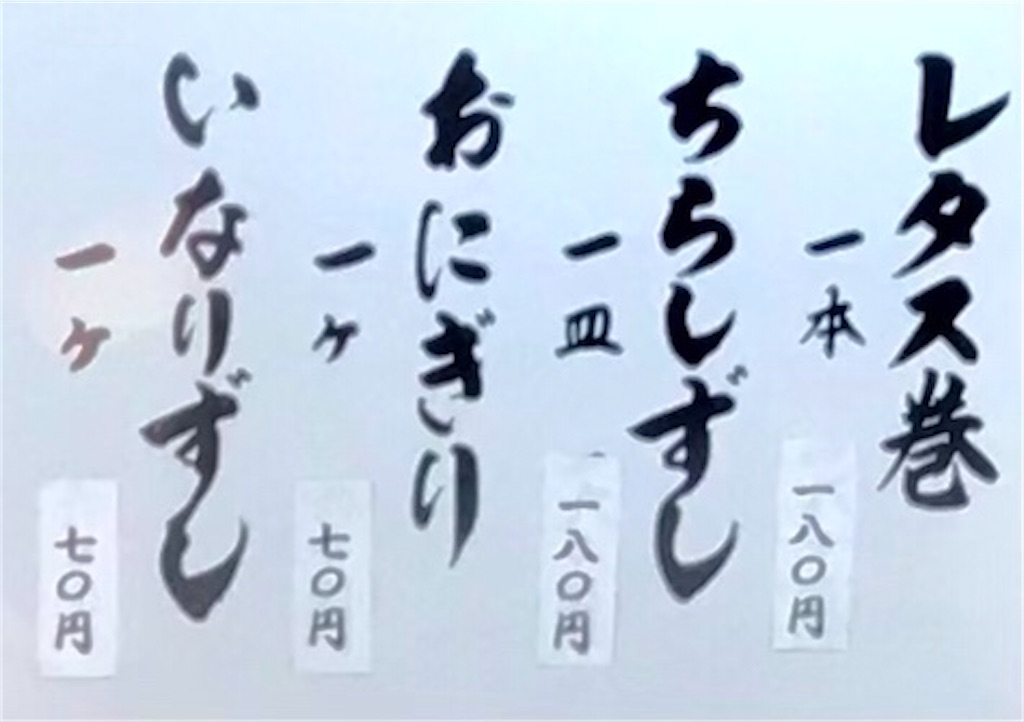 レタス巻
一本
一八〇円
ちらしずし
一皿
一八〇円
おにぎり
一ヶ
七〇円
いなりずし
一ヶ
七〇円